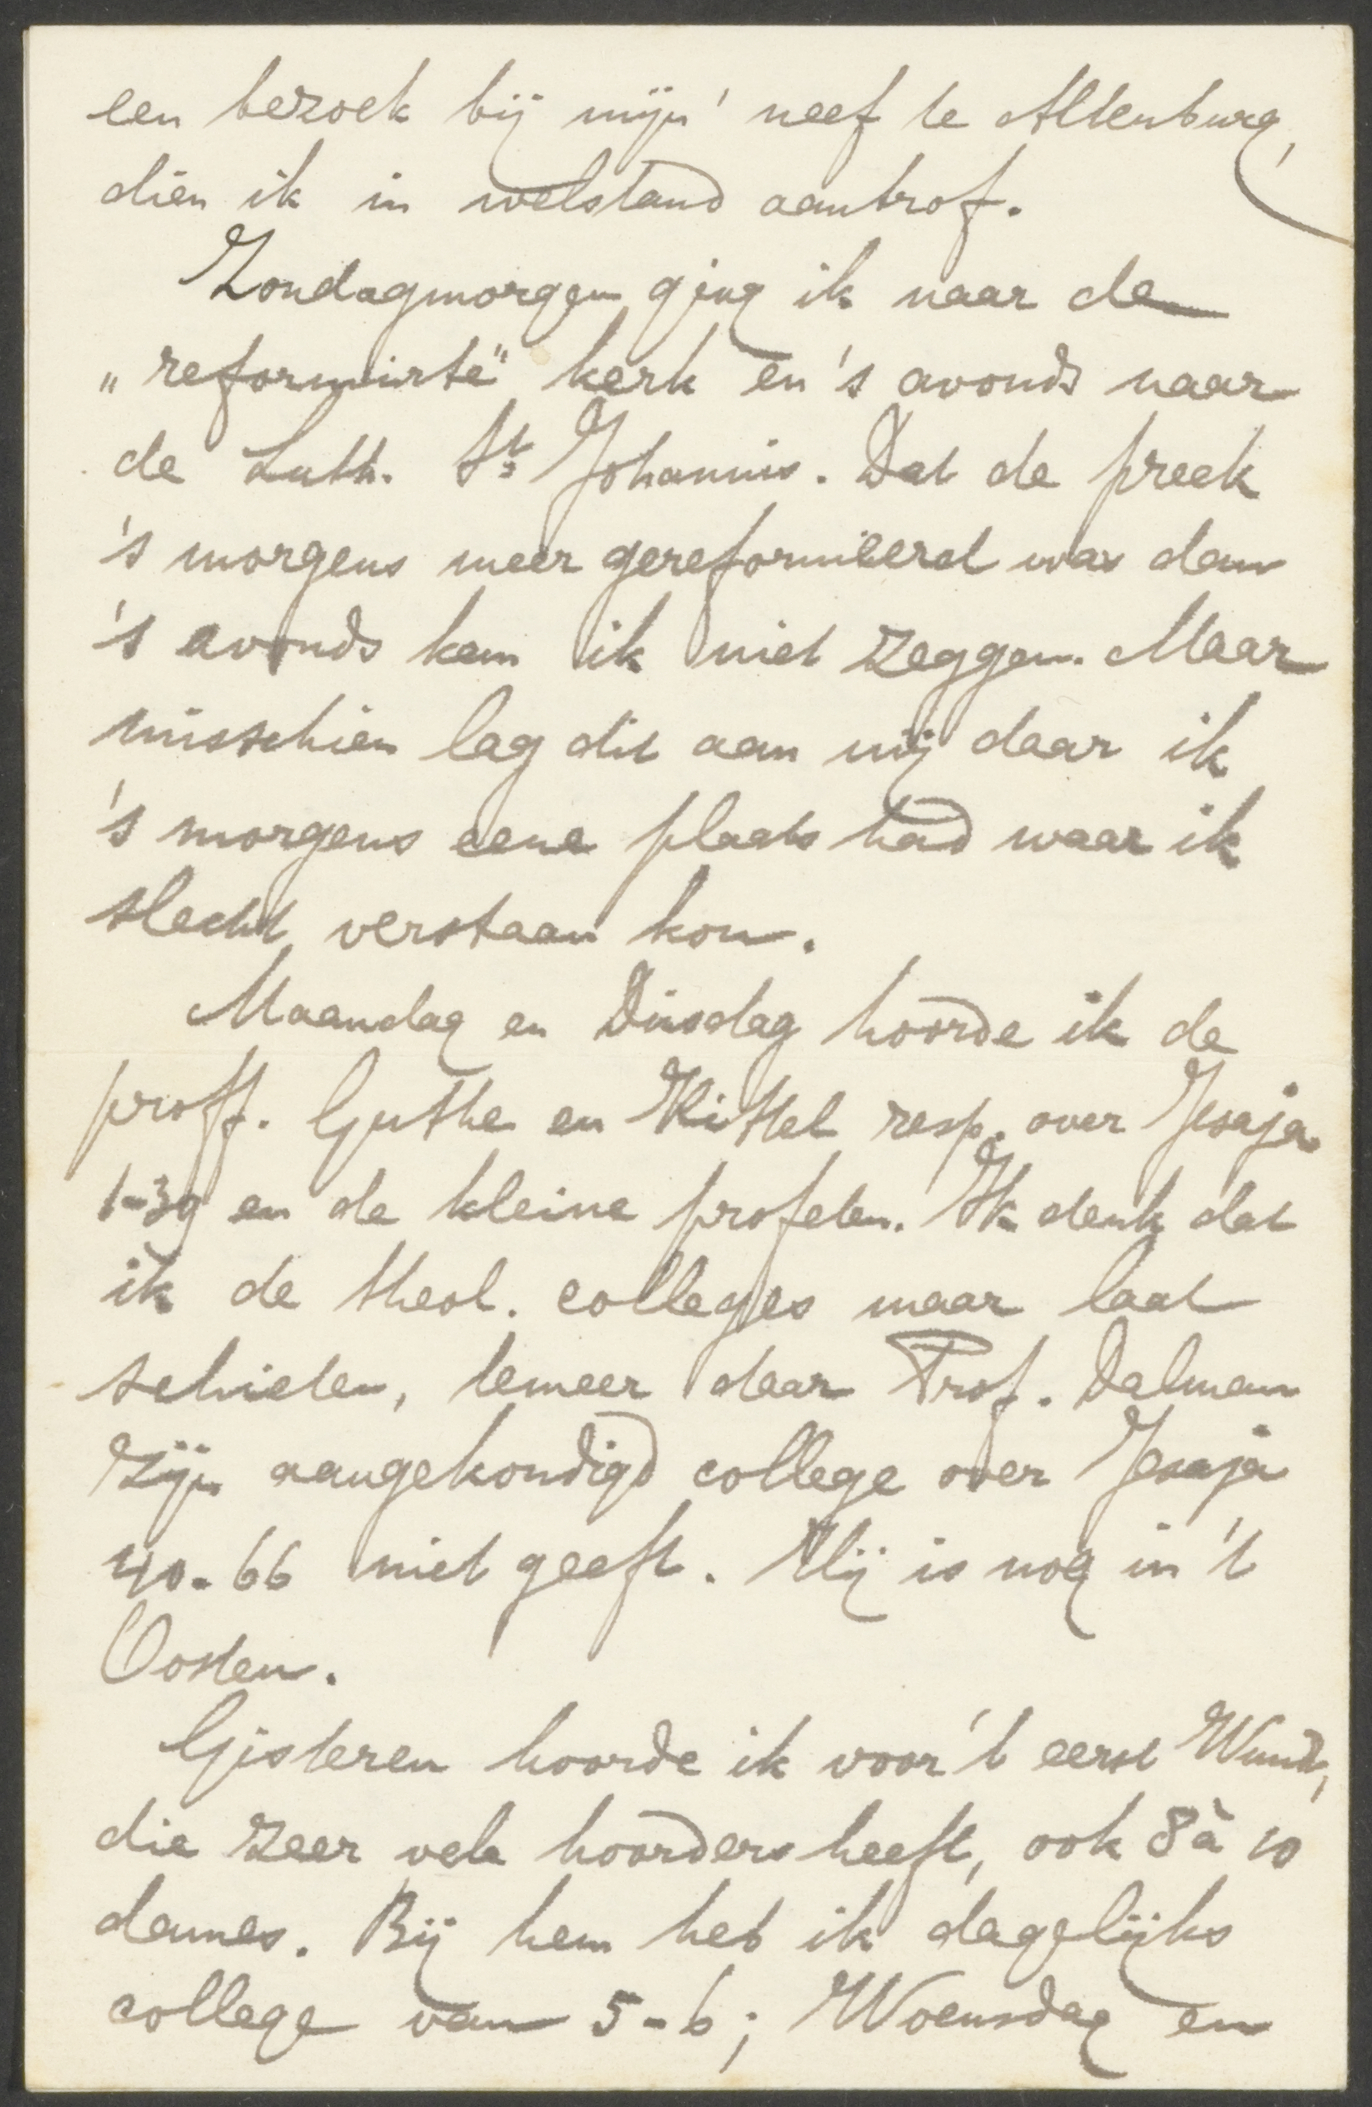 een bezoek bij mijn' neef te Altenburg,
dien ik in welstand aantrof.
Zondagmorgen ging ik naar de
„reformirte" kerk en 's avonds naar
de Luth. St Johannis. Dat de preek
's morgens meer gereformeerd was dan
's avonds kan ik niet zeggen. Maar
misschien lag dit aan mij daar ik
's morgens eene plaats had waar ik
slecht verstaan kon.
Maandag en Dinsdag hoorde ik de
proff. Guthe en Kittel resp. over Jesaja
1-39 en de kleine profeten. Ik denk dat
ik de theol. colleges maar laat
schieten, temeer daar Prof. Dalman
zijn aangekondigd college over Jesaja
40-66 niet geeft. Hij is nog in 't
Oosten.
Gisteren hoorde ik voor 't eerst Wundt,
die zeer vele hoorders heeft, ook 8 à 10
dames. Bij hem heb ik dagelijks
college van 5-6; Woensdag en